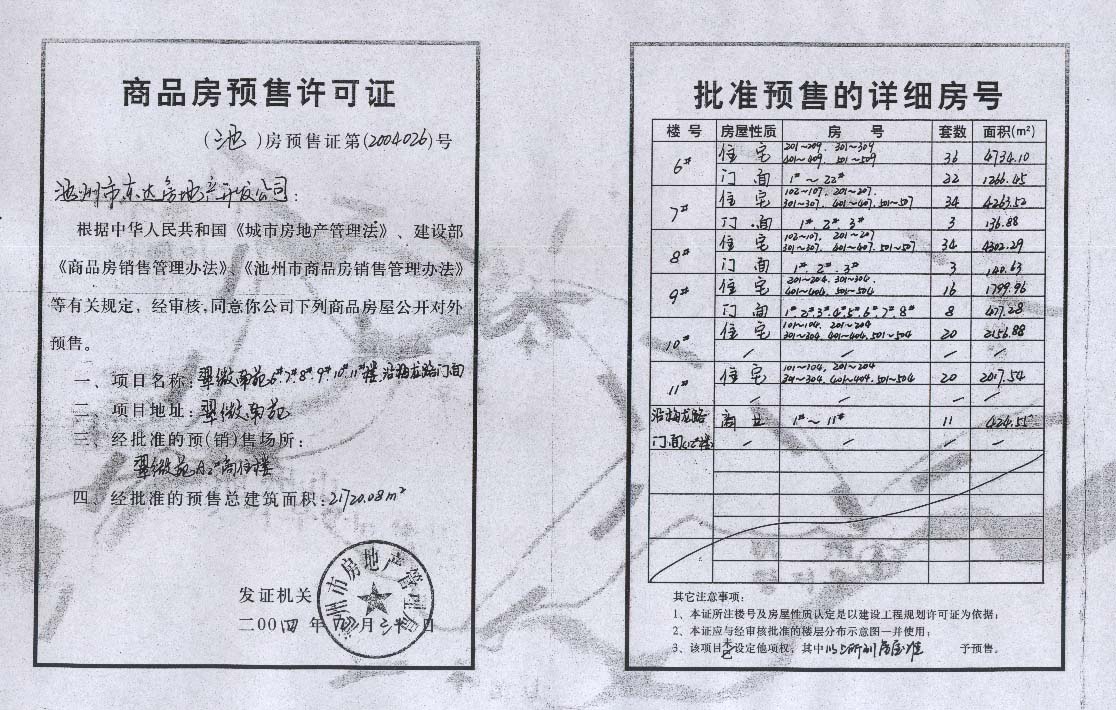 商品房预售许可证
(池)房预售证第(2004026)号
池州市东达房地产开发公司:
根据中华人民共和国《城市房地产管理法》、建设部
《商品房销售管理办法》、《池州市商品房销售管理办法》
等有关规定，经审核，同意你公司下列商品房屋公开对外
预售。
一、项目名称:翠微南苑6#.7#8#.9#10#.11#楼、沿梅龙路门面
二、项目地址:翠微南苑
三、经批准的预(销)售场所:
翠微苑 商住楼
四、经批准的预售总建筑面积:21720.08m²
发证机关
池州市房地产管理局
二00四年 月 日
批准预售的详细房号
楼号 房屋性质 房号 套数 面积(m²)
6# 住宅 201~209. 301~309 401~409. 501~509 36 4734.10
门面 1#~22# 22 1266.45
7# 住宅 102~107. 201~207. 301~307. 401~407. 501~507 34 4263.52
门面 1#. 2#. 3# 3 136.88
8# 住宅 102~107. 201~207 301~307. 401~407. 501~507 34 4302.29
门面 1#. 2#. 3# 3 140.63
9# 住宅 201~204. 301~304 401~404. 501~504 16 1799.96
门面 1#2#3#.4#.5#.6#.7#.8# 8 477.28
10# 住宅 101~104. 201~204 301~304. 401~404. 501~504 20 2156.88
/ / / /
11# 住宅 101~104. 201~204 301~304. 401~404. 501~504 20 2017.54
/ / / /
沿梅龙路 商业 1#~11# 11 424.55
门面 / / / /
其它注意事项:
1、本证所注楼号及房屋性质认定是以建设工程规划许可证为依据;
2、本证应与经审核批准的楼层分布示意图一并使用;
3、该项目未设定他项权，其中以上所列房屋准予预售。